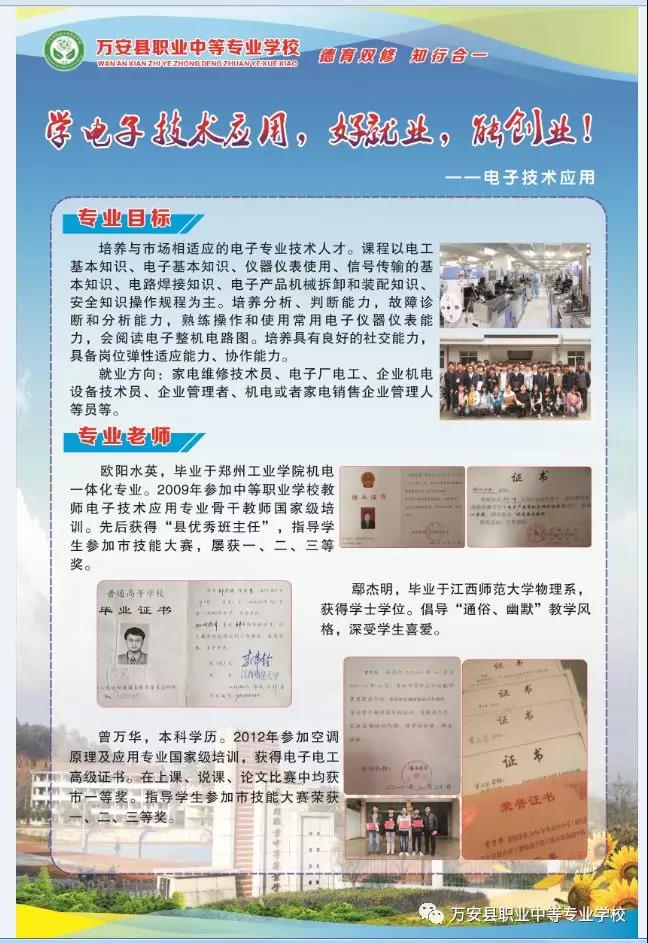 万安县职业中等专业学校
WAN AN XIAN ZHI YE ZHONG DENG ZHUAN YE XUE XIAO
德育双修 知行合一
学电子技术应用，好就业，能创业！
——电子技术应用
专业目标
培养与市场相适应的电子专业技术人才。课程以电工
基本知识、电子基本知识、仪器仪表使用、信号传输的基
本知识、电路焊接知识、电子产品机械拆卸和装配知识、
安全知识操作规程为主。培养分析、判断能力，故障诊
断和分析能力，熟练操作和使用常用电子仪器仪表能
力，会阅读电子整机电路图。培养具有良好的社交能力，
具备岗位弹性适应能力、协作能力。
就业方向：家电维修技术员、电子厂电工、企业机电
设备技术员、企业管理者、机电或者家电销售企业管理人
等员等。
专业老师
欧阳水英，毕业于郑州工业学院机电
一体化专业。2009年参加中等职业学校教
师电子技术应用专业骨干教师国家级培
训。先后获得“县优秀班主任”，指导学
生参加市技能大赛，屡获一、二、三等
奖。
结业证书
证书
普通高等学校
毕业证书
鄢杰明，毕业于江西师范大学物理系，
获得学士学位。倡导“通俗、幽默”教学风
格，深受学生喜爱。
曾万华，本科学历。2012年参加空调
原理及应用专业国家级培训，获得电子电工
高级证书。在上课、说课、论文比赛中均获
市一等奖。指导学生参加市技能大赛荣获
一、二、三等奖。
证书
证书
证书
荣誉证书
万安县职业中等专业学校